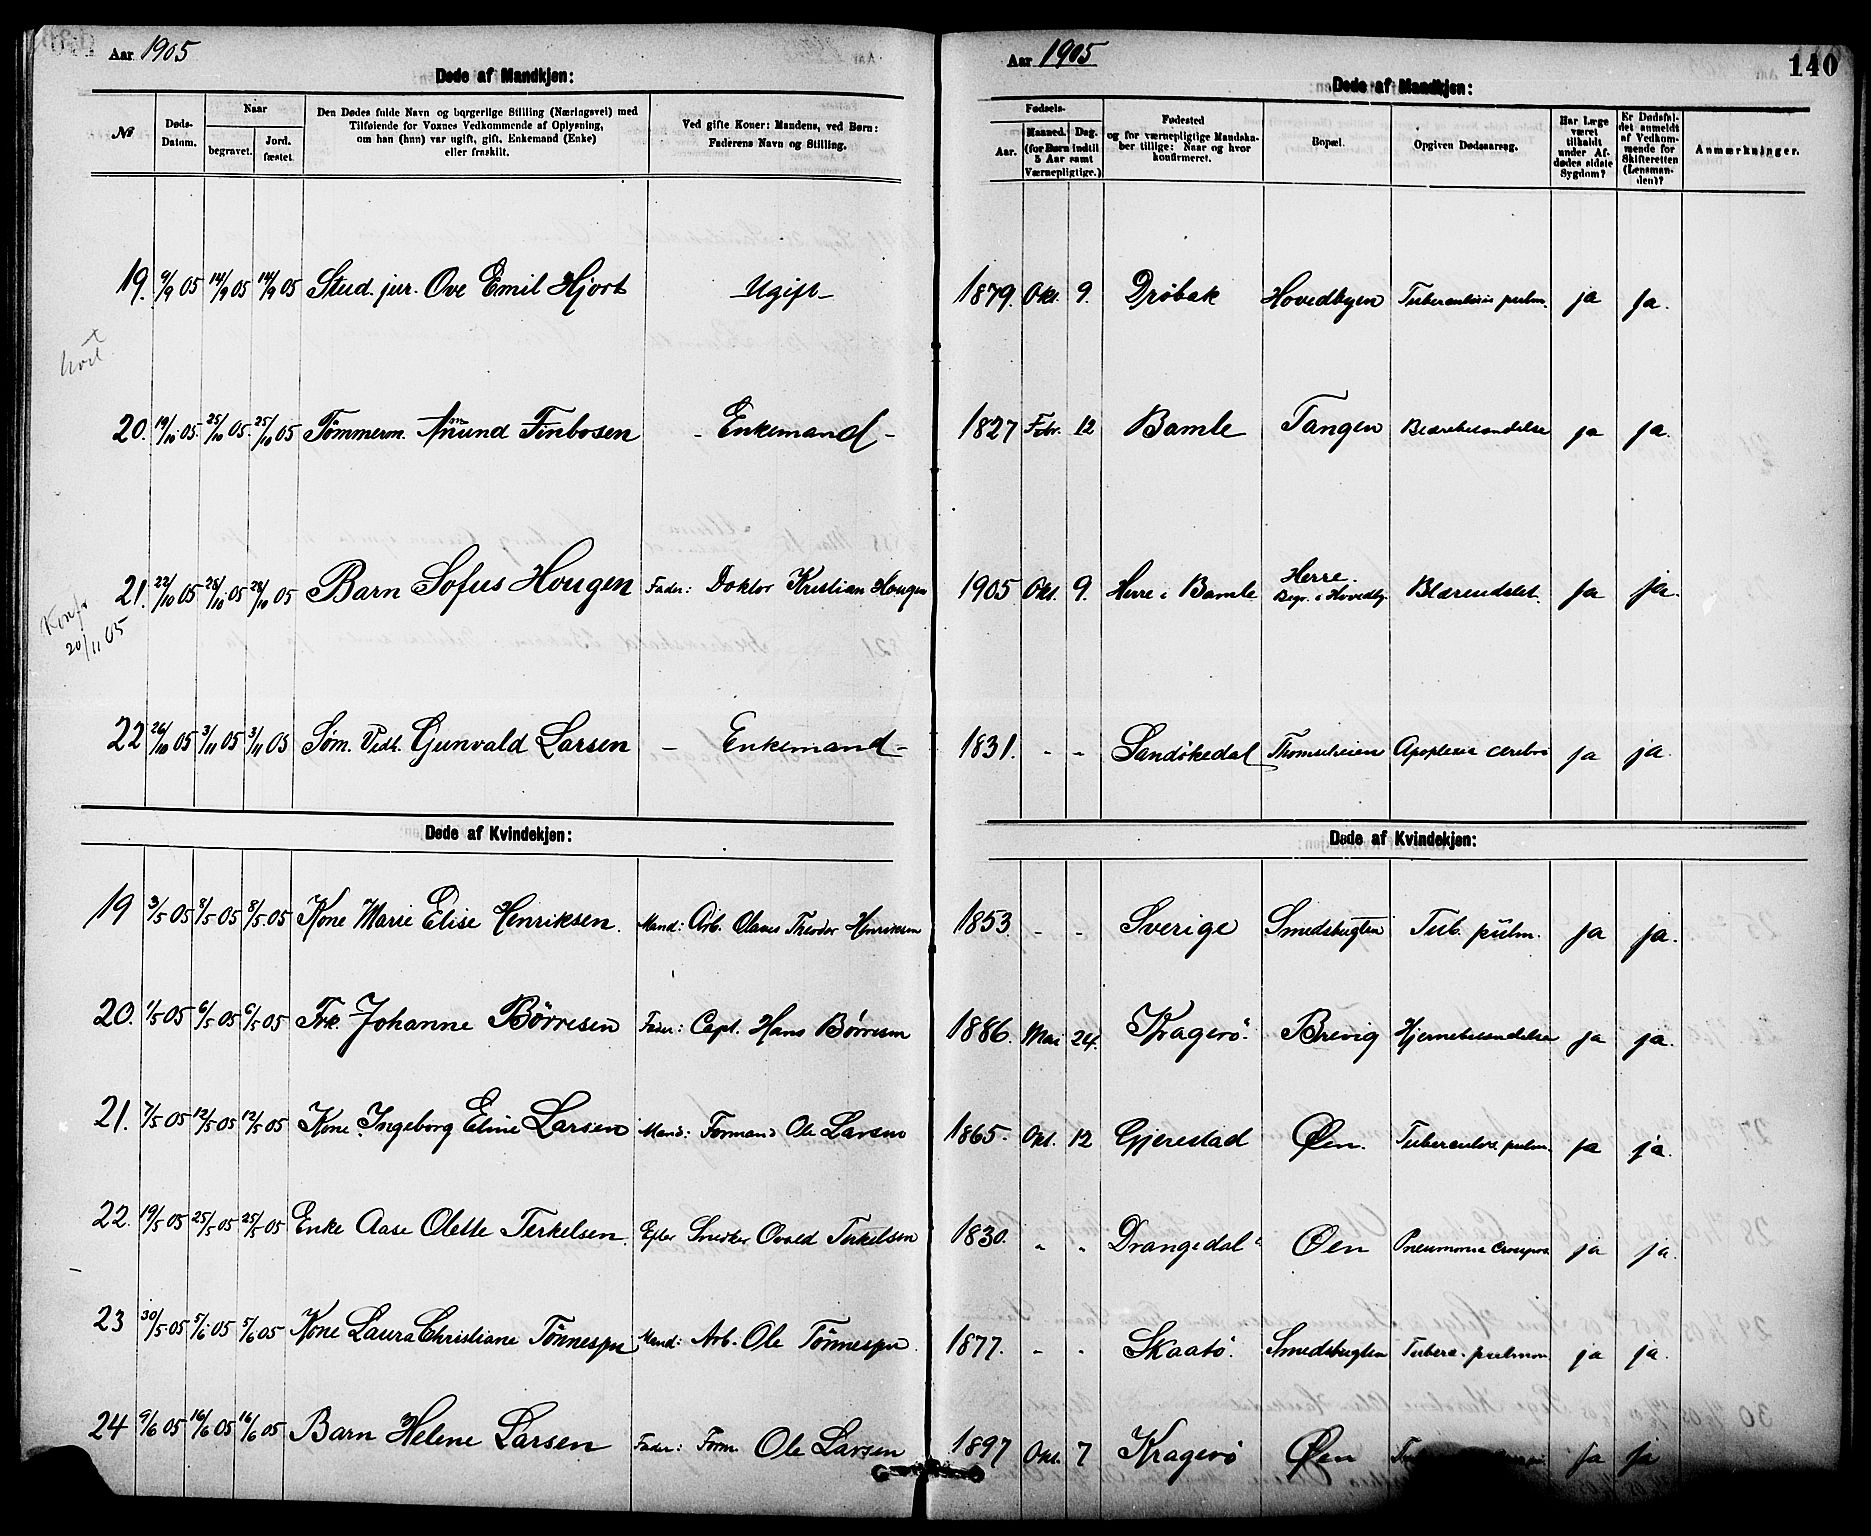 Aar 1905
Døde af Mandkjøn:
№
Døds-Datum.
Naar
begravet.
Jord-fæstet.
Den Dødes fulde Navn og borgerlige Stilling (Næringsvei) med
Tilføiende for Voxnes Vedkommende af Oplysning,
om han (hun) var ugift, gift, Enkemand (Enke)
eller fraskilt.
Ved gifte Koner: Mandens, ved Børn:
Faderens Navn og Stilling.
19. 9/9 05 14/9 05 14/9 05 Stud. jur. Ove Emil Hjort Ugift
20. 19/10 05. 25/10 05. 25/10 05 Tømmerm. Anund Finbosen - Enkemand -
21. 22/10 05 28/10 05 28/10 05 Barn Sofus Hougen Fader: Doktor Kristian Hougen
Konf
20/11 05
22 26/10 05 3/11 05 3/11 05 Søm. Gunvald Larsen - Enkemand -
Døde af Kvindekjøn:
19 3/5 05 8/5 05 8/5 05 Kone Marie Elise Henriksen. Mand: Arb. Olaves Theodor Henriksen
20. 1/5 05 6/5 05 6/5 05 Frk. Johanne Börresen Fader: Capt. Hans Börresen
21. 7/5 05 12/5 05 12/5 05 Kone Ingeborg Eline Larsen Mand: Formand Ole Larsen
22. 19/5 05 25/5 05 25/5 05 Enke Aase Olette Terkelsen. Efter Snedker Terkelsen
23 30/5 05 5/6 05 5/6 05 Kone Laura Christiane Tönnesen Mand: Arb. Ole Tönnesen.
24 9/6 05 16/6 05 16/6 05 Barn Helene Larsen Fader: Form. Ole Larsen
Aar 1905
140
Døde af Mandkjøn:
Fødsels-
Aar.
Maaned. Dag.
(for Børn indtil
5 Aar samt
Værnepligtige.)
Fødested
og for værnepligtige Mandska-
ber tillige: Naar og hvor
konfirmeret.
Bopæl.
Opgiven Dødsaarsag.
Har Læge
været
tilkaldt
under Af-
dødes sidste
Sygdom?
Er Dødsfal-
det anmeldt
af Vedkom-
mende for
Skifteretten
(Lensman-
den)?
Anmærkninger.
1879. Okt. 9. Drøbak Hovedbyen Tuberculosis pulm. ja ja.
1827 Febr. 12 Bamle Tangen Blærebetændelse ja ja.
1905 Okt. 9. Herre i Bamle Herre.
Begr. i Hovedby. ja ja.
1831. - - Sandøkedal Thomesheien Apoplexia cerebri ja ja.
Døde af Kvindekjøn:
1853. - - Sverige Smedsbugten Tub. pulm. ja ja.
1886. Mai 24. Kragerö. Brevig Hjernebetændelse ja ja.
1865. Okt. 12 Gjerestad Øen. Tuberculos. pulm. ja ja.
1830. " " Drangedal Øen Pneumonia crouposa ja ja.
1877. - - Skaatö. Smedsbugten Tuberc. pulmon ja ja.
1897 Okt. 7 Kragerö Øen ja ja